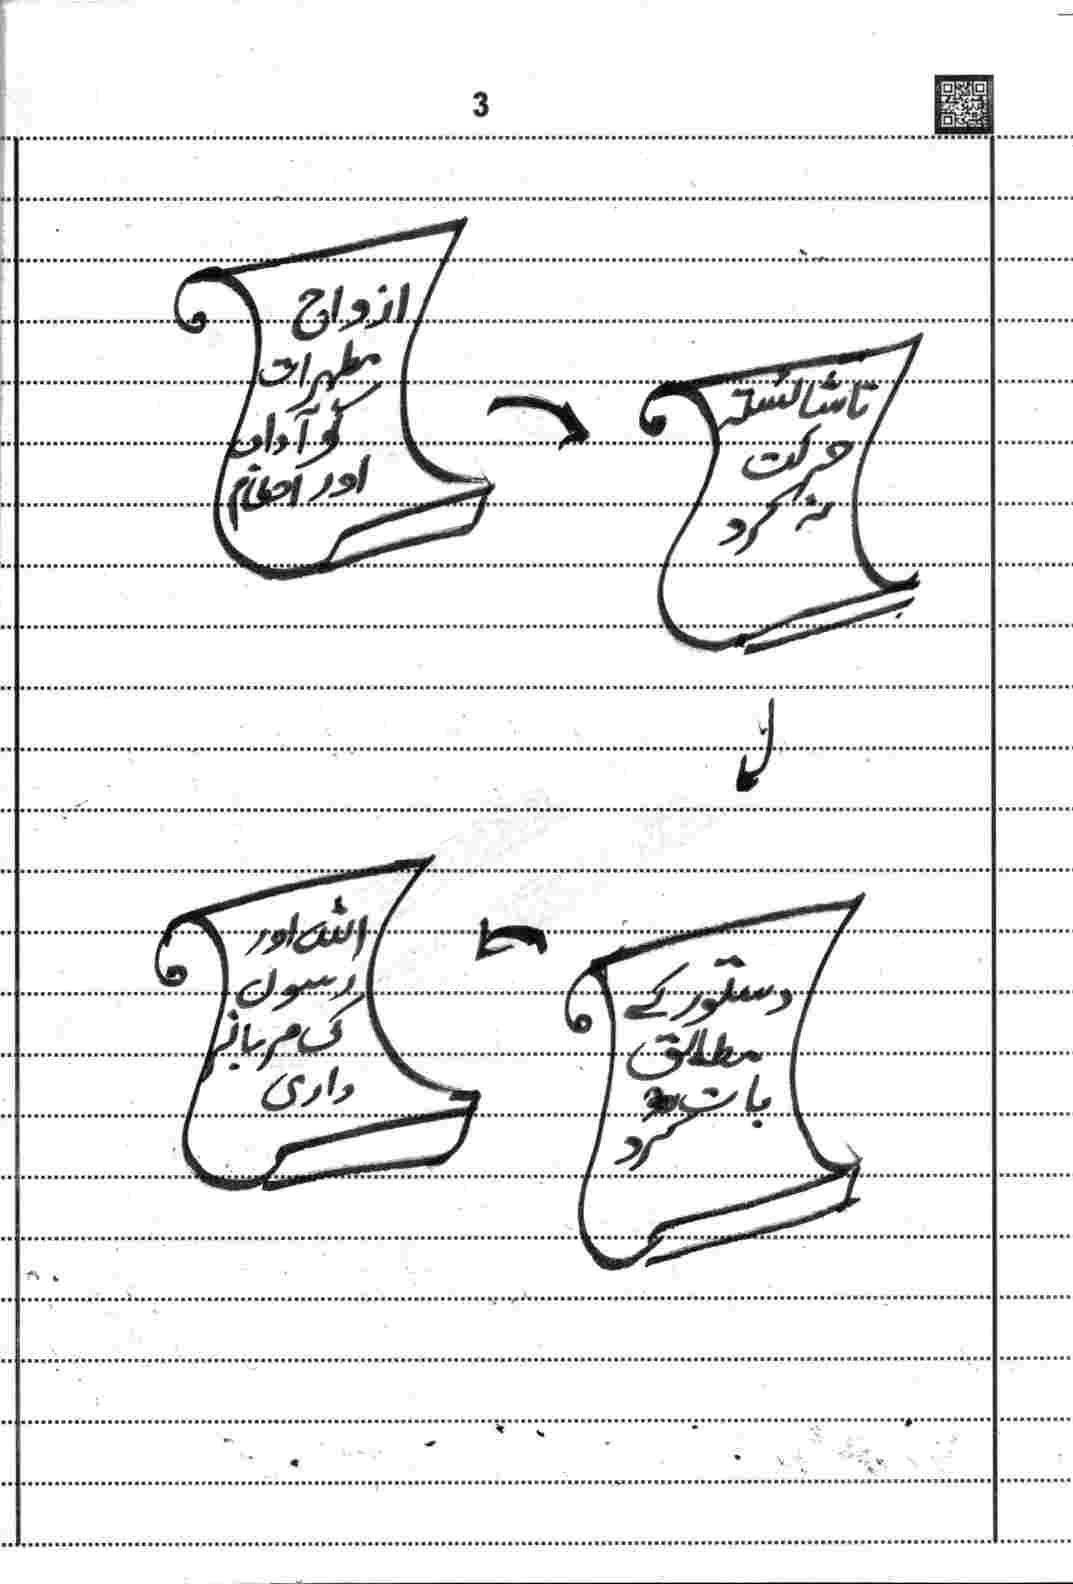 3
ازواج
مطہرات
کو آداب
اور احکام
ناشائستہ
حرکت
نہ کرد
دستور کے
مطابق
بات
کرد
اللہ اور
رسول
کی
داری